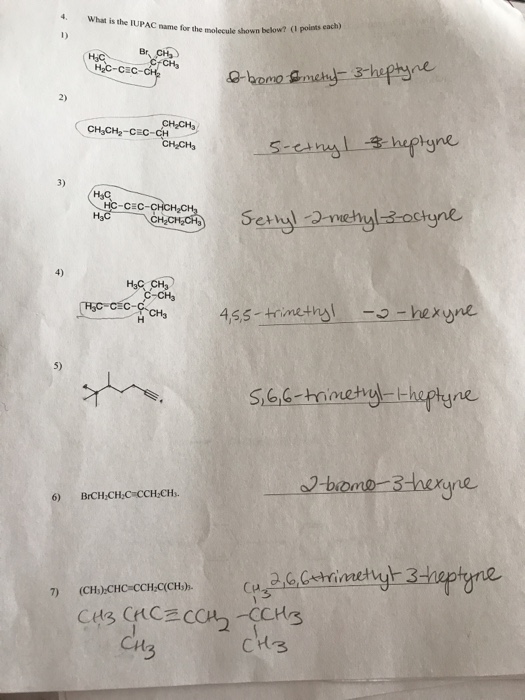 4. What is the IUPAC name for the molecule shown below? (1 points each)
1)
Br CH₃
H₃C C-CH₃
H₂C-C≡C-CH₂
-bromo metyl- 3-heptyne
2)
CH₂CH₃
CH₃CH₂-C≡C-CH
CH₂CH₃
5-ethyl heptyne
3)
H₃C
HC-C≡C-CHCH₂CH₃
H₃C CH₂CH₂CH₃
5ethyl-2-methyl-3-octyne
4)
H₃C CH₃
C-CH₃
H₃C-C≡C-C
H CH₃
4,5,5-trimethyl -2-hexyne
5)
5,6,6-trimethyl-1-heptyne
6) BrCH₂CH₂C≡CCH₂CH₃.
2-bromo-3-hexyne
7) (CH₃)₂CHC≡CCH₂C(CH₃)₃.
2,6,6-trimethyl-3-heptyne
CH₃
CH3 CHC≡CCH₂-CCH3
CH3 CH3